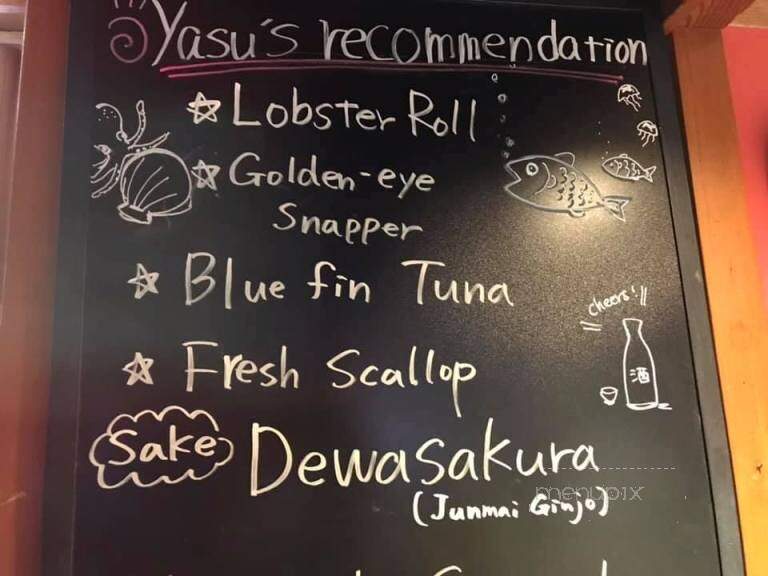 Yasu's recommendation
☆ Lobster Roll
☆ Golden-eye
Snapper
☆ Blue fin Tuna
cheers!
☆ Fresh Scallop
酒
Sake Dewasakura
(Junmai Ginjo)
menupix